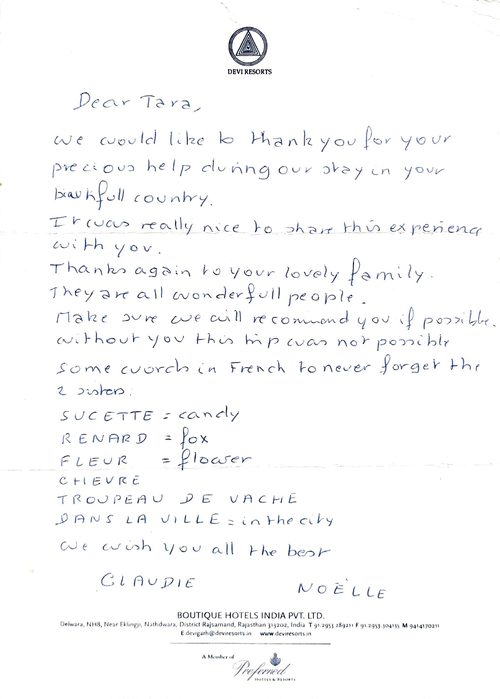 DEVI RESORTS
Dear Tara,
We would like to thank you for your
precious help during our stay in your
beautifull country.
It was really nice to share this experience
with you.
Thanks again to your lovely family.
They are all wonderfull people.
Make sure we will recommend you if possible.
without you this trip was not possible
Some words in French to never forget the
2 sisters:
SUCETTE = candy
RENARD = fox
FLEUR = flower
CHEVRE
TROUPEAU DE VACHE
DANS LA VILLE = in the city
We wish you all the best
CLAUDIE NOËLLE
BOUTIQUE HOTELS INDIA PVT. LTD.
Delwara, NH8, Near Eklingji, Nathdwara, District Rajsamand, Rajasthan 313202, India T 91 2953 289211 F 91 2953 304135 M 9414170211
E devigarh@deviresorts.in www.deviresorts.in
A Member of
Preferred
HOTELS & RESORTS